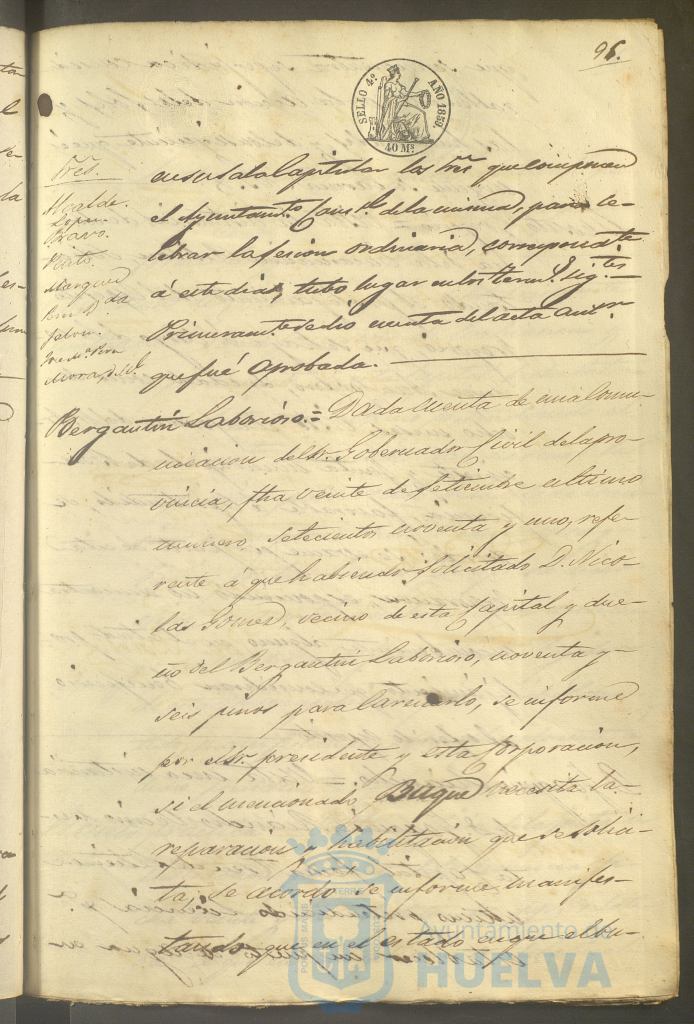 96.
SELLO 4º. AÑO 1859.
40 Ms.
Sres.
Alcalde.
Lopez.
Bravo.
Marquez
en su sala Capitular los Sres. que componen
el Ayuntamto. Constl. de la misma, para ce-
lebrar la sesion ordinaria, correspondte.
á este dia, tubo lugar en los termos. sigtes.
Primeramte. se dio cuenta del acta antr.
que fué aprobada.
Bergantin Laborioso.= Dada cuenta de una comu-
nicacion del Sr. Gobernador Civil de la pro-
vincia, fha veinte de Setiembre ultimo
numero setecientos noventa y uno, refe-
rente á que habiendo solicitado D. Nico-
las Gomez, vecino de esta Capital y due-
ño del Bergantin Laborioso, noventa y
seis pinos para carenarlo, se informe
por el Sr. presidente y esta Corporacion,
si el mencionado Buque necesita la
reparacion y habilitacion que se solici-
ta; se acordo se informe manifes-
tando que en el estado en que el bu-
Ayuntamiento de
HUELVA